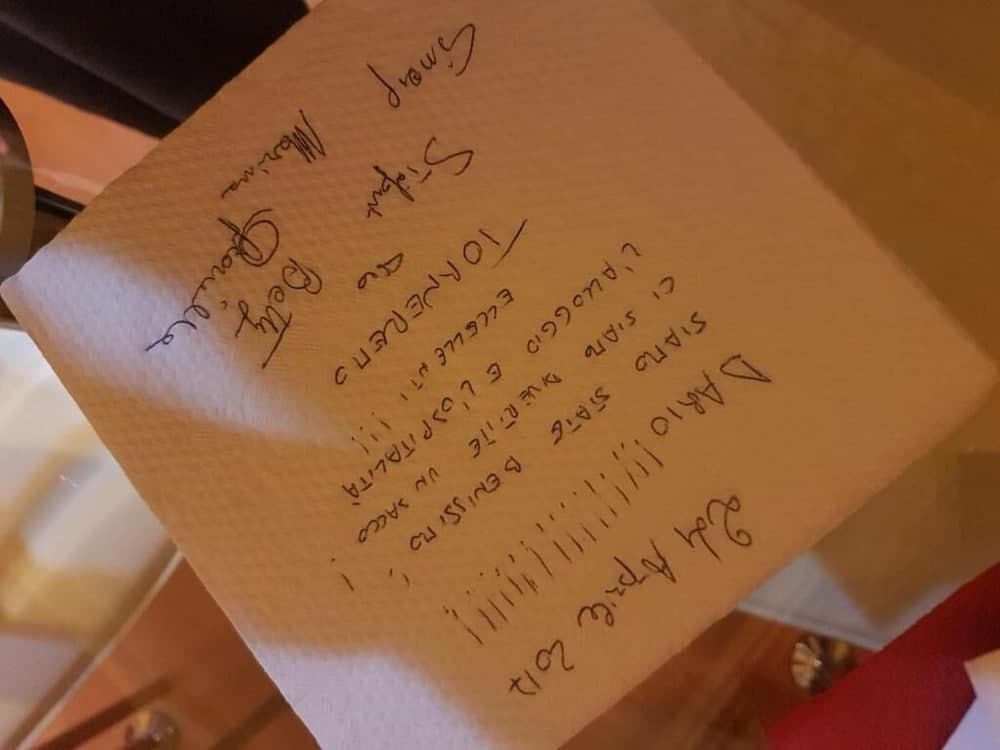 24 Aprile 2017
DARIO!!!!!!!!!!!!!
SIAMO STATE BENISSIMO!
CI SIAMO DIVERTITE UN SACCO!
L'ALLOGGIO E L'OSPITALITÀ
ECCELLENTI!!!
TORNEREMO
Betty
Marina